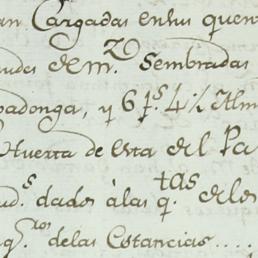 an Cargadas en sus quent
de m.zo Sembradas
badonga, y 6 p.s 4 1/2 Alm
Huerta de esta del Pa
ud.s dados à las q.tas de los
q.tos de las Estancias....